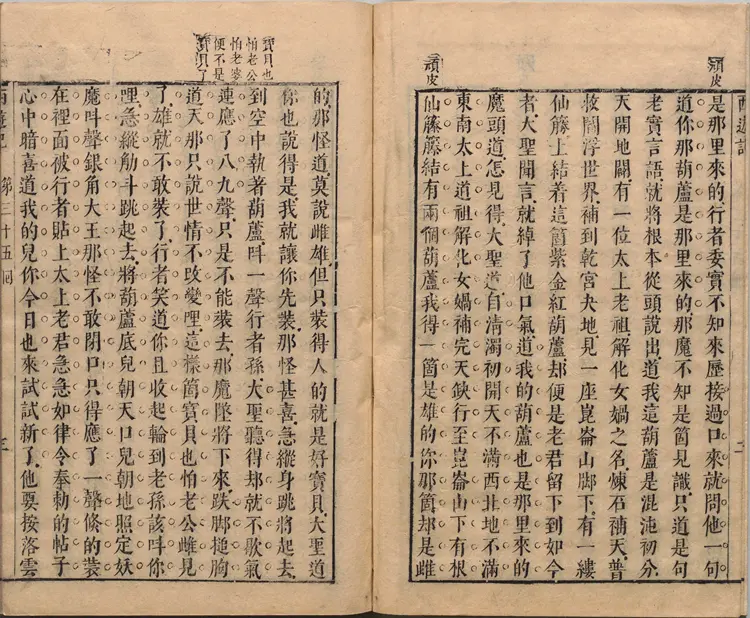 頑皮
西遊記
是那里來的行者委實不知來歷接過口來就問他一句
道你那葫蘆是那里來的那魔不知是箇見識只道是句
老實言語就將根本從頭說出道我這葫蘆是混沌初分
天開地闢有一位太上老祖解化女媧之名煉石補天普
救閻浮世界補到乾宮夬地見一座崑崙山脚下有一縷
仙籐上結着這箇紫金紅葫蘆却便是老君留下到如今
者大聖聞言就綽了他口氣道我的葫蘆也是那里來的
魔頭道怎見得大聖道自清濁初開天不滿西北地不滿
東南太上道祖解化女媧補完天缺行至崑崙山下有根
仙籐籐結有兩個葫蘆我得一箇是雄的你那箇却是雌
頑皮
二
的那怪道莫說雌雄但只裝得人的就是好寶貝大聖道
你也說得是我就讓你先裝那怪甚喜急縱身跳將起去
到空中執著葫蘆叫一聲行者孫大聖聽得却就不歇氣
連應了八九聲只是不能裝去那魔墜將下來跌脚搥胸
道天那只說世情不改變哩這樣箇寶貝也怕老公雌見
了雄就不敢裝了行者笑道你且收起輪到老孫該叫你
哩急縱觔斗跳起去將葫蘆底兒朝天口兒朝地照定妖
魔叫聲銀角大王那怪不敢閉口只得應了一聲倐的裝
在裡面被行者貼上太上老君急急如律令奉勅的帖子
心中暗喜道我的兒你今日也來試試新了他要按落雲
寶貝也
怕老公
怕老婆
便不是
寶貝了
西遊記
第三十五回
三